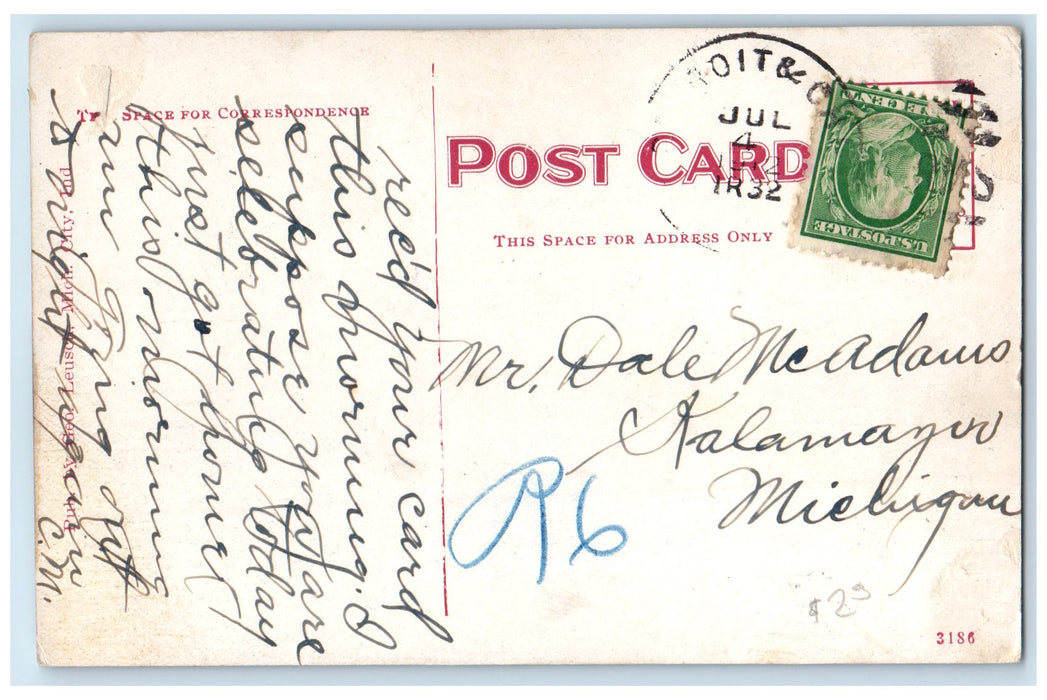 THIS SPACE FOR CORRESPONDENCE
POST CARD
THIS SPACE FOR ADDRESS ONLY
OIT & C
JUL
4
1912
TR 32
U.S. POSTAGE
CENT
rec'd your card
this morning. I
suppose you are
selebrating today
just got home
this morning
am going
to
C.M.
Mr. Dale McAdams
Kalamazoo
Michigan
R6
Pub. by Geo. Leusch, Mich. City, Ind
3186